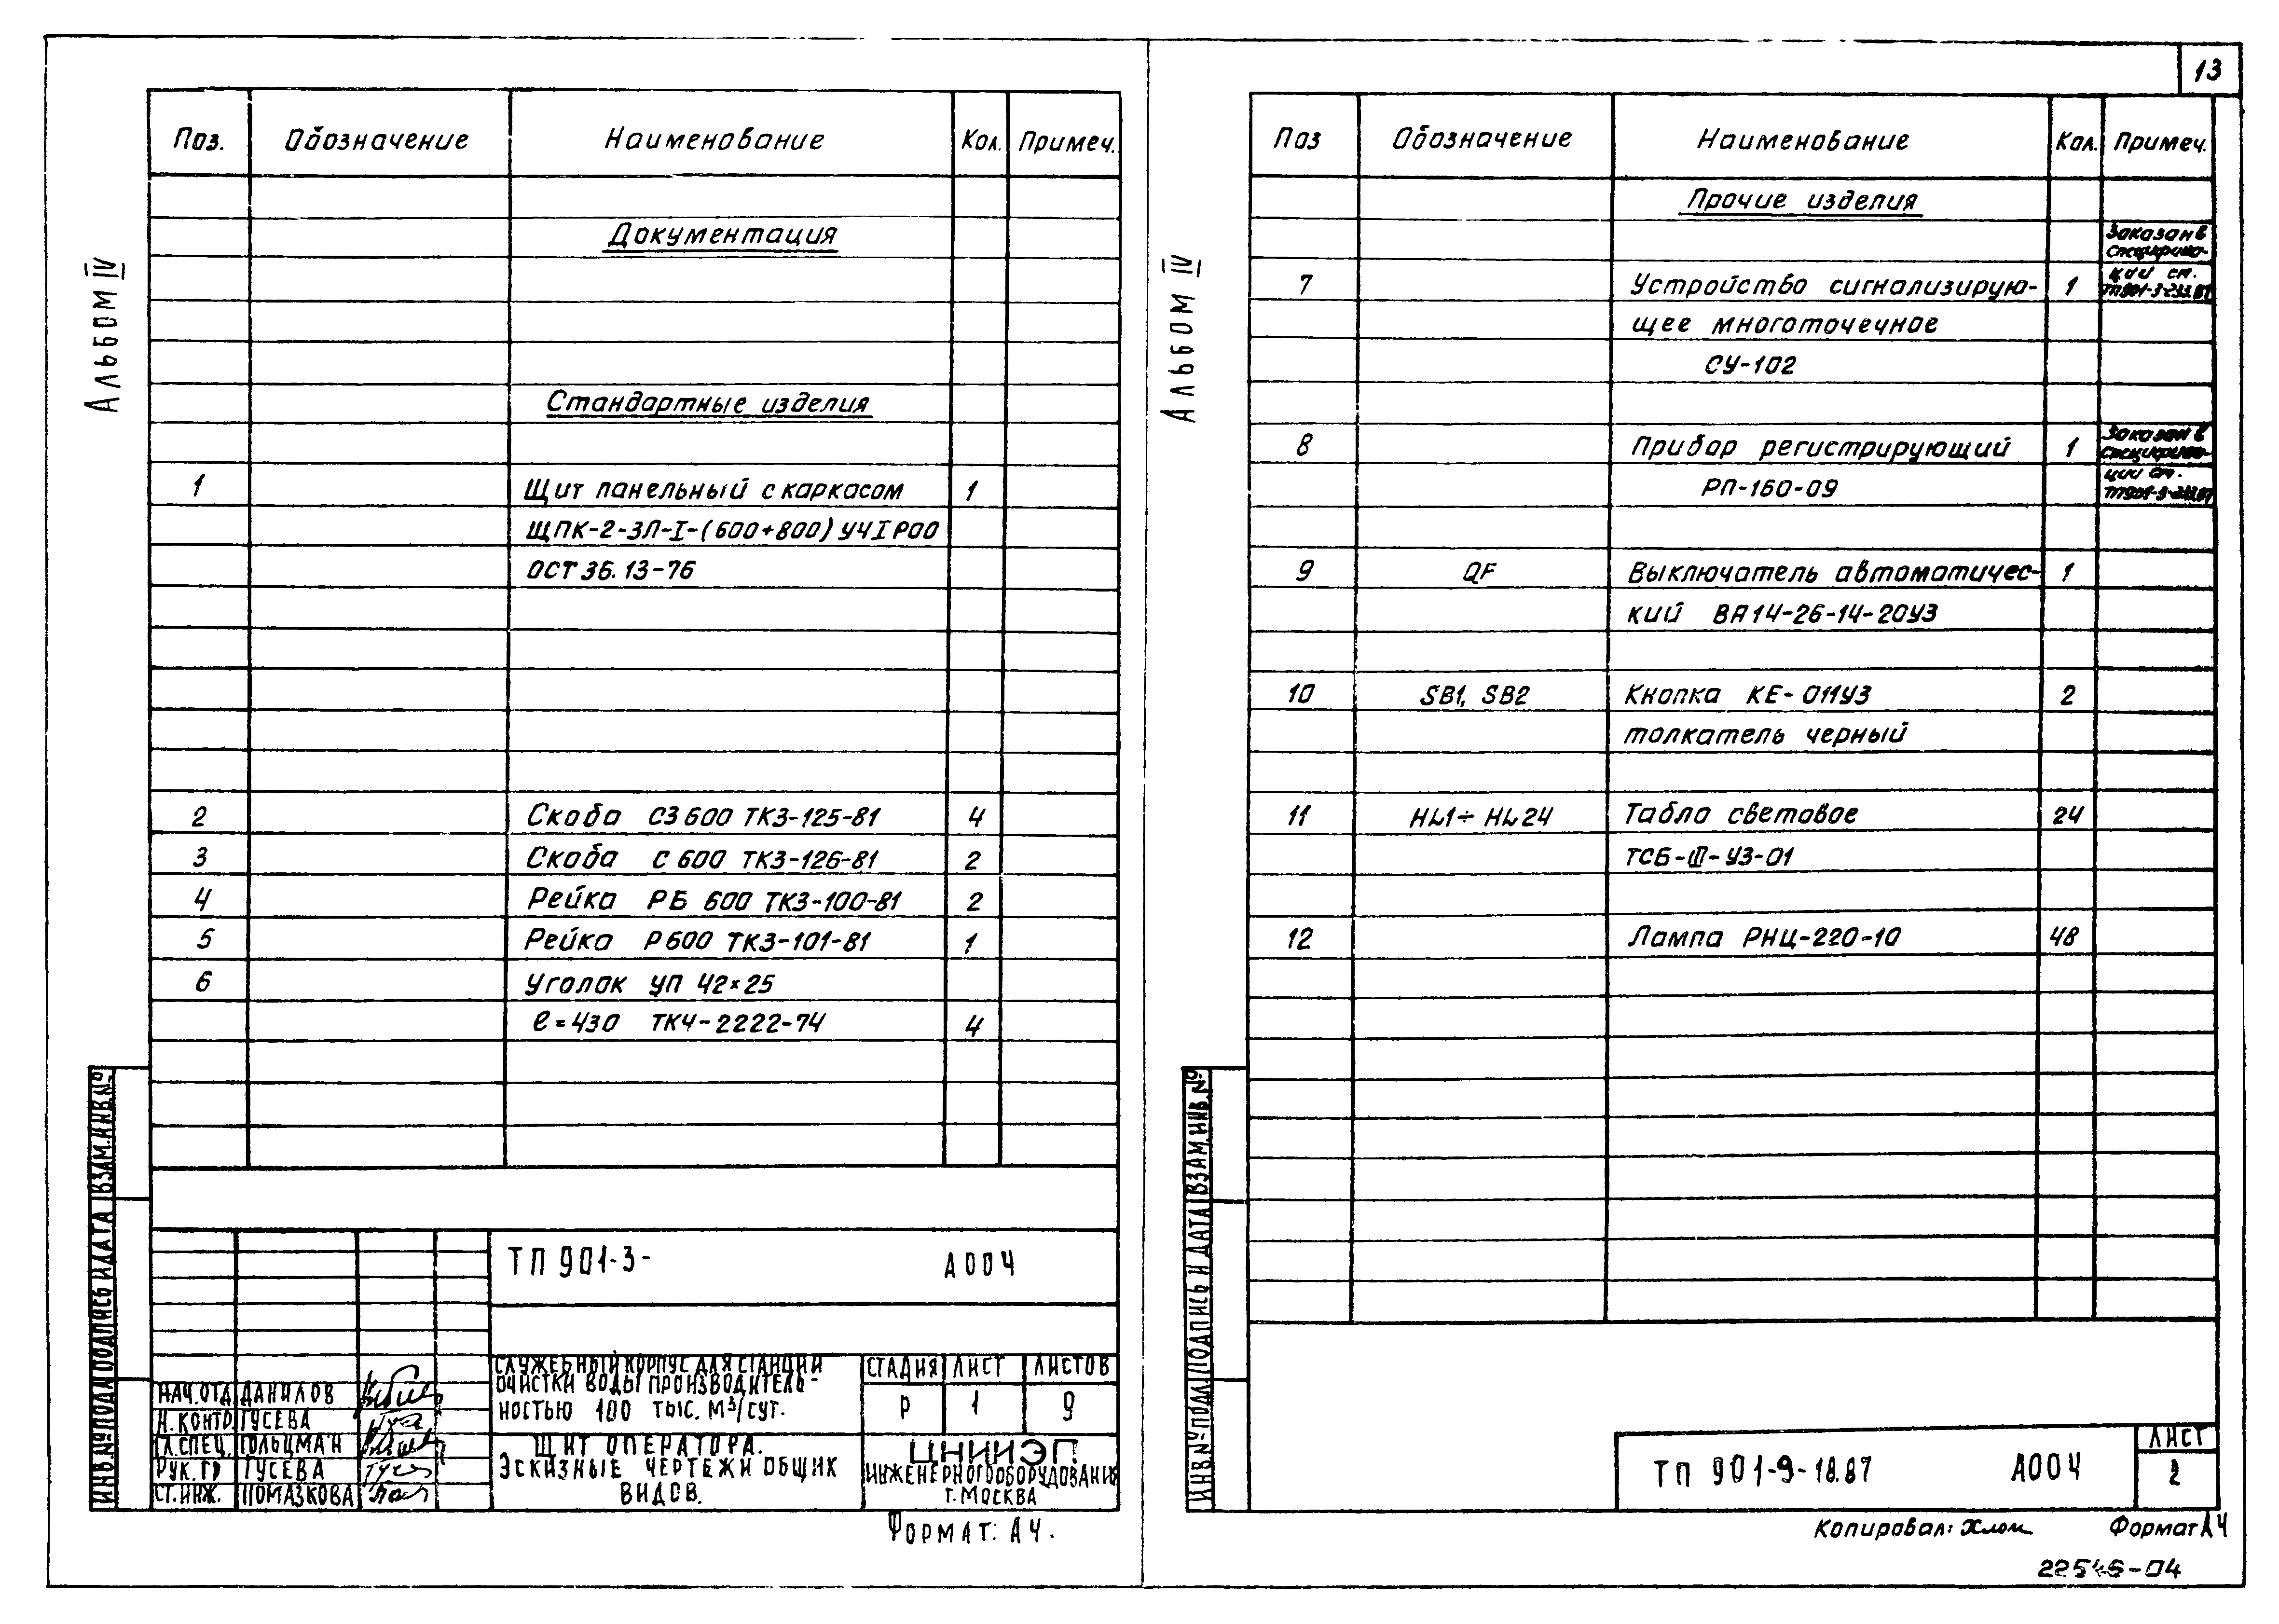 13
Альбом IV
Поз. Обозначение Наименование Кол. Примеч.
Документация
Стандартные изделия
1 Щит панельный с каркасом 1
ЩПК-2-ЗЛ-I-(600+800)У4IP00
ОСТ 36.13-76
2 Скоба СЗ 600 ТКЗ-125-81 4
3 Скоба С 600 ТКЗ-126-81 2
4 Рейка РБ 600 ТКЗ-100-81 2
5 Рейка Р600 ТКЗ-101-81 1
6 Уголок УП 42×25
ℓ=430 ТК4-2222-74 4
ИНВ.№ПОДЛ ПОДПИСЬ И ДАТА ВЗАМ.ИНВ.№
ТП 901-3- АОО4
СЛУЖЕБНЫЙ КОРПУС ДЛЯ СТАНЦИИ
ОЧИСТКИ ВОДЫ ПРОИЗВОДИТЕЛЬ-
НОСТЬЮ 100 ТЫС. М³/СУТ.
СТАДИЯ ЛИСТ ЛИСТОВ
Р 1 9
НАЧ.ОТД ДАНИЛОВ
Н.КОНТР ГУСЕВА
ГЛ.СПЕЦ. ГОЛЬЦМАН
РУК.ГР ГУСЕВА
СТ.ИНЖ. ПОМАЗКОВА
ЩИТ ОПЕРАТОРА.
ЭСКИЗНЫЕ ЧЕРТЕЖИ ОБЩИХ
ВИДОВ.
ЦНИИЭП
ИНЖЕНЕРНОГО ОБОРУДОВАНИЯ
Г. МОСКВА
ФОРМАТ: А4.
Альбом IV
Поз Обозначение Наименование Кол. Примеч.
Прочие изделия
Заказан в
специфика-
7 Устройство сигнализирую- 1 ции см.
щее многоточечное
СУ-102
8 Прибор регистрирующий 1 Заказан в
специфика-
РП-160-09 ции см.
9 QF Выключатель автоматичес- 1
кий ВА14-26-14-20У3
10 SB1, SB2 Кнопка КЕ-011У3 2
толкатель черный
11 HL1÷HL24 Табло световое 24
ТСБ-III-УЗ-01
12 Лампа РНЦ-220-10 48
ИНВ.№ПОДЛ ПОДПИСЬ И ДАТА ВЗАМ.ИНВ.№
ТП 901-9-18.87 АОО4
ЛИСТ
2
Копировал: Хлом Формат А4